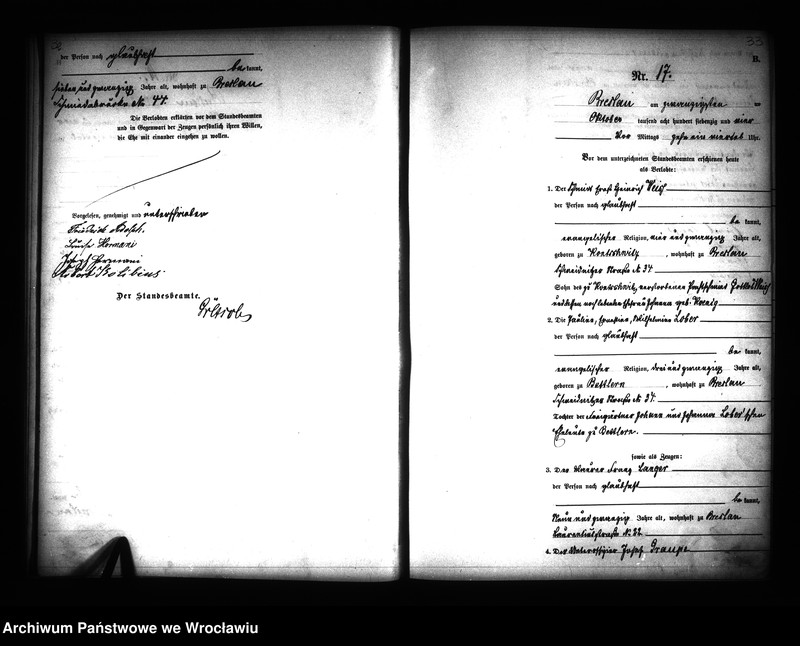 der Person nach glaubhaft
be kannt,
sieben und zwanzig Jahre alt, wohnhaft zu Breslau
Schmiedebrücke № 44.
Die Verlobten erklärten vor dem Standesbeamten
und in Gegenwart der Zeugen persönlich ihren Willen,
die Ehe mit einander eingehen zu wollen.
Vorgelesen, genehmigt und unterschrieben
Friedrich
Louise Hermani
Joseph Hermani
Robert
Der Standesbeamte.
33
B.
Nr. 17.
Breslau am zwanzigsten
Oktober tausend acht hundert siebenzig und vier
Vor Mittags zehn ein viertel Uhr.
Vor dem unterzeichneten Standesbeamten erschienen heute
als Verlobte:
1. Der Schmidt Ernst Heinrich Weiß
der Person nach glaubhaft
be kannt,
evangelischer Religion, vier und zwanzig Jahre alt,
geboren zu , wohnhaft zu Breslau
Schweidnitzer Straße № 34
Sohn des zu verstorbenen Gottlieb Weiß
und dessen noch lebende Ehefrau Johanna geb. Koenig
2. Die Pauline, Ernestine, Wilhelmine Lober
der Person nach glaubhaft
be kannt,
evangelischer Religion, drei und zwanzig Jahre alt,
geboren zu Bettlern , wohnhaft zu Breslau
Schweidnitzer Straße № 37.
Tochter der Freigärtner Johann und Johanna Lober'schen
Eheleute zu Bettlern.
sowie als Zeugen:
3. Der Maurer Franz Langer
der Person nach glaubhaft
be kannt,
Neun und zwanzig Jahre alt, wohnhaft zu Breslau
Laurentiusstraße № 22
4. Der Unteroffizier Josef Graupe
Archiwum Państwowe we Wrocławiu